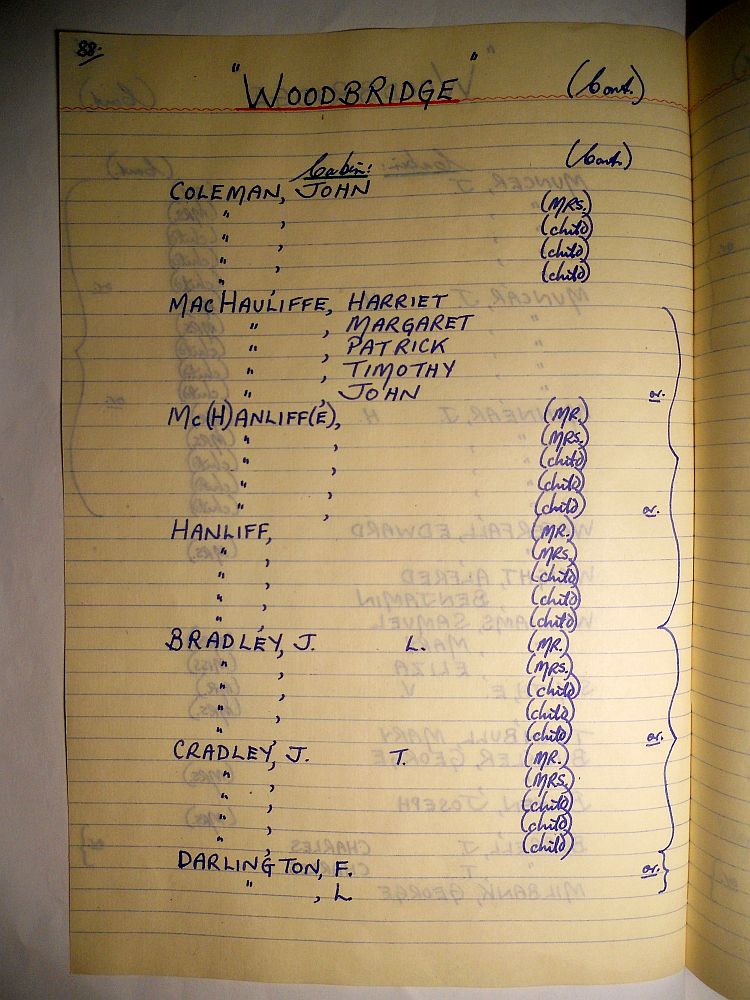 88.
"WOODBRIDGE" (Cont.)
Cabin: (Cont.)
COLEMAN, JOHN
" , (MRS.)
" , (child)
" , (child)
" , (child)
MACHAULIFFE, HARRIET
" , MARGARET
" , PATRICK
" , TIMOTHY
" , JOHN or.
Mc(H)ANLIFF(E), (MR.)
" , (MRS.)
" , (child)
" , (child)
" , (child) or.
HANLIFF, (MR.)
" , (MRS.)
" , (child)
" , (child)
" , (child)
BRADLEY, J. L. (MR.)
" , (MRS.)
" , (child)
" , (child)
" , (child) or.
CRADLEY, J. T. (MR.)
" , (MRS.)
" , (child)
" , (child)
" , (child)
DARLINGTON, F. or.
" , L.